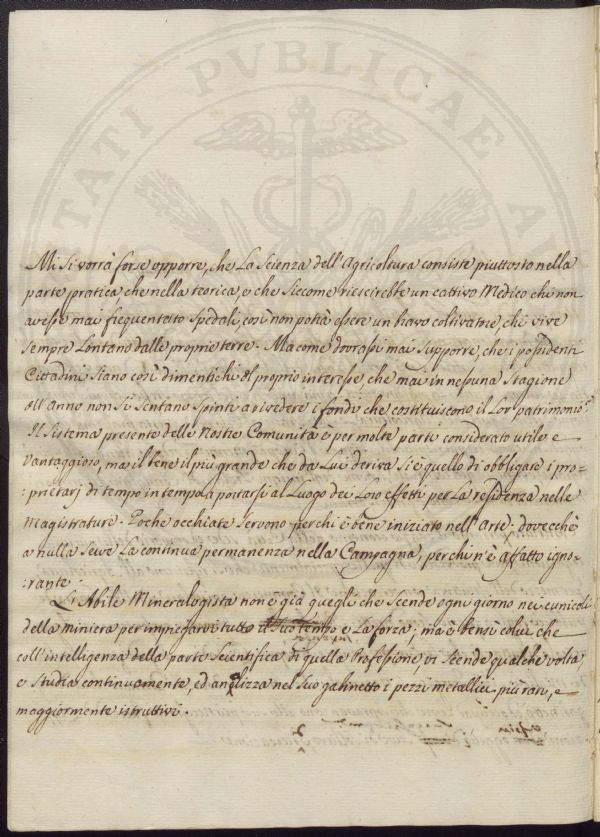 TATI PVBLICAE
Mi si vorrà forse opporre, che La Scienza dell'Agricoltura consiste piuttosto nella
parte pratica, che nella teorica, e che siccome riescirebbe un cattivo Medico chi non
avesse mai frequentato spedali, così non potrà essere un bravo coltivatore, chi vive
sempre Lontano dalle proprie terre. Ma come dovrassi mai supporre, che i possidenti
Cittadini siano così dimentichi del proprio interesse, che mai in nessuna Stagione
dell'anno non si sentano spinti a rivedere i fondi che costituiscono il Lor patrimonio?
Il Sistema presente delle Nostre Comunità è per molte parti considerato utile e
Vantaggioso, ma il bene il più grande che da Lui deriva si è quello di obbligare i pro=
:prietarj di tempo in tempo a portarsi al Luogo dei Loro effetti per La residenza nelle
Magistrature. Poche occhiate servono per chi è bene iniziato nell'Arte; dovecchè
a nulla serve La continua permanenza nella Campagna, per chi n'è affatto igno=
:rante.
L'Abile Mineralogista non è già quegli che Scende ogni giorno nei cunicoli
della miniera per impiegarvi tutto il suo tempo e La forza; ma è bensì colui che
coll'intelligenza della parte Scientifica di quella Professione vi Scende qualche volta,
e Studia continuamente, ed analizza nel Suo gabinetto i pezzi metallici più rari, e
maggiormente istruttivi.